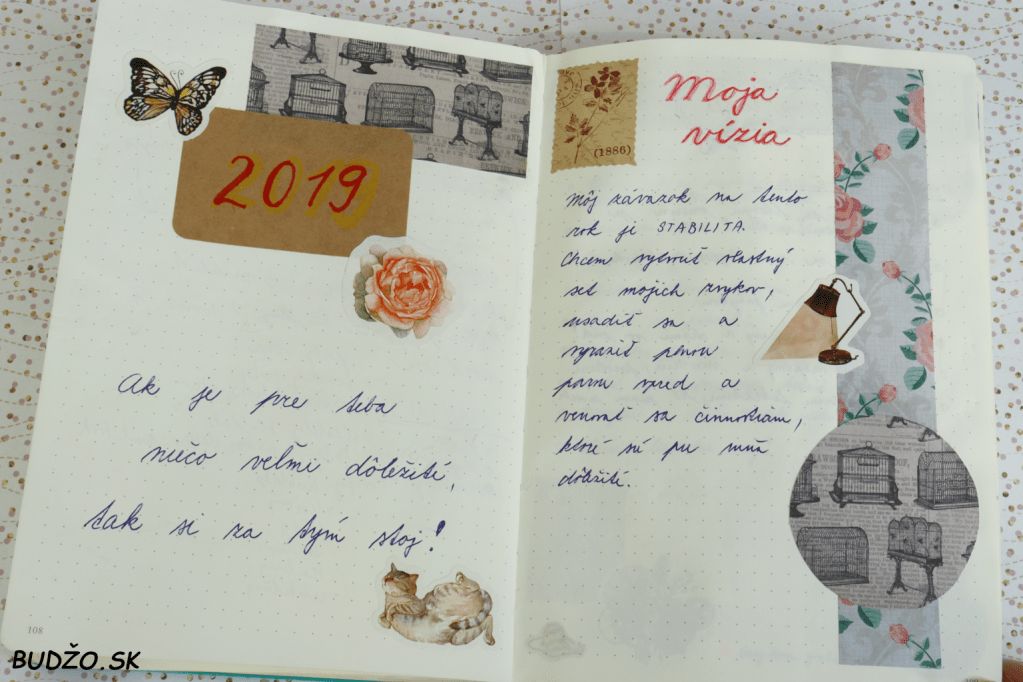 2019
Ak je pre teba
niečo veľmi dôležité,
tak si za tým stoj!
108
BUDŽO.SK
(1886)
Moja
vízia
Môj záväzok na tento
rok je STABILITA.
Chcem vytvoriť vlastný
set mojich zvykov,
usadiť sa a
vyraziť plnou
parou vpred a
venovať sa činnostiam,
ktoré sú pre mňa
dôležité.